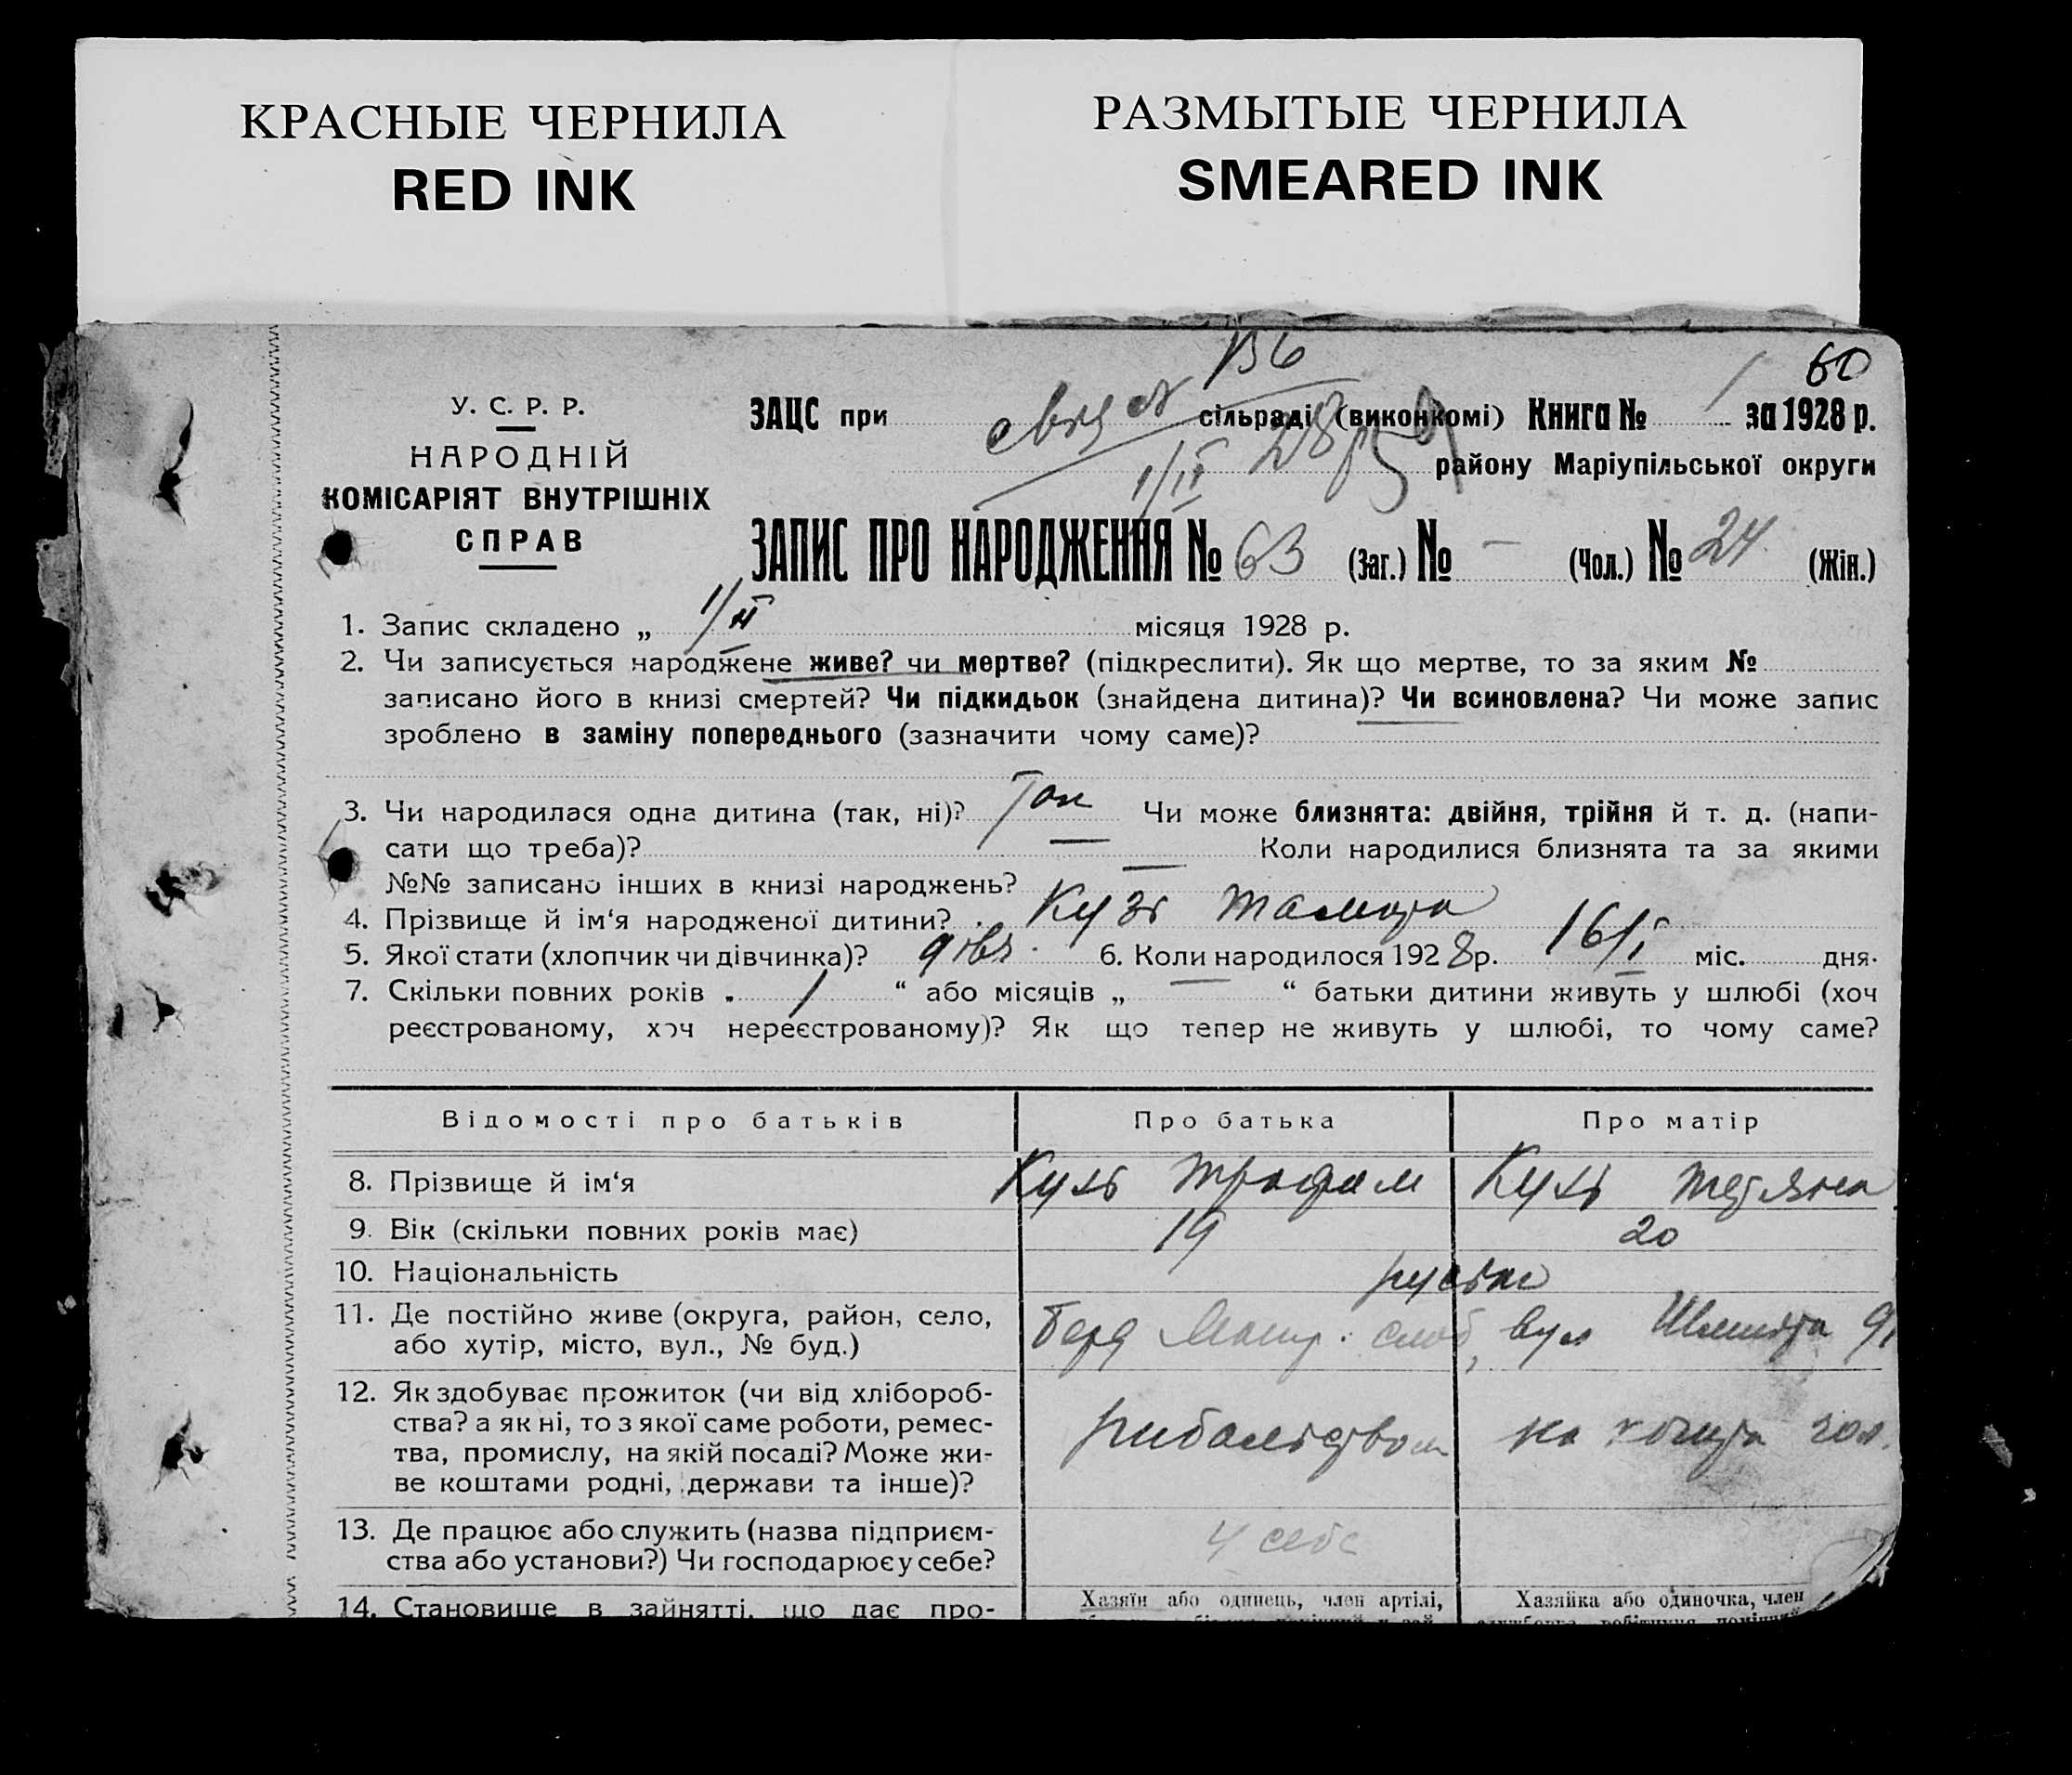 КРАСНЫЕ ЧЕРНИЛА
RED INK
РАЗМЫТЫЕ ЧЕРНИЛА
SMEARED INK
60
У. С. Р. Р.
НАРОДНІЙ
КОМІСАРІЯТ ВНУТРІШНІХ
СПРАВ
ЗАЦС при сільраді (виконкомі) Книга № 1 за 1928 р.
району Маріупільської округи
1/II
ЗАПИС ПРО НАРОДЖЕННЯ № 63 (Заг.) № – (Чол.) № 24 (Жін.)
1. Запис складено „ 1/II місяця 1928 р.
2. Чи записується народжене живе? чи мертве? (підкреслити). Як що мертве, то за яким №
записано його в книзі смертей? Чи підкидьок (знайдена дитина)? Чи всиновлена? Чи може запис
зроблено в заміну попереднього (зазначити чому саме)?
3. Чи народилася одна дитина (так, ні)? Так Чи може близнята: двійня, трійня й т. д. (напи-
сати що треба)? — Коли народилися близнята та за якими
№№ записано інших в книзі народжень? —
4. Прізвище й ім‘я народженої дитини? Кузь Тамара
5. Якої стати (хлопчик чи дівчинка)? дівч. 6. Коли народилося 1928 р. 16/I міс. дня.
7. Скільки повних років „ 1 “ або місяців „ — “ батьки дитини живуть у шлюбі (хоч
реєстрованому, хоч нереєстрованому)? Як що тепер не живуть у шлюбі, то чому саме?
Відомості про батьків Про батька Про матір
8. Прізвище й ім‘я Кузь Трофим Кузь Тетяна
9. Вік (скільки повних років має) 19 20
10. Національність руські
11. Де постійно живе (округа, район, село, Берд слоб, вул Шмидта 91
або хутір, місто, вул., № буд.)
12. Як здобуває прожиток (чи від хлібороб-
ства? а як ні, то з якої саме роботи, ремес- рибальством на
тва, промислу, на якій посаді? Може жи-
ве коштами родні, держави та інше)?
13. Де працює або служить (назва підприєм- у себе
ства або установи?) Чи господарює у себе?
14. Становище в зайнятті, що дає про- Хазяїн або одинець, член артілі, Хазяйка або одиночка, член